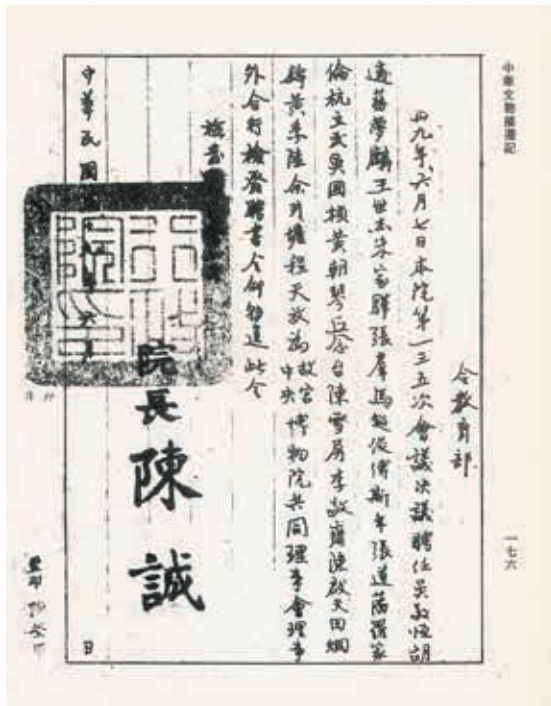 中華文物播遷記
一七六
令教育部
四九年六月七日本院第一三五次會議決議聘任吳敬恆胡
適蔣夢麟王世杰朱家驊張羣馬超俊傅斯年張道藩羅家
倫杭立武吳國楨黃朝琴丘念台陳雪屏李敬齋陳啟天田烱
錦黃季陸余井塘程天放為故宮中央博物院共同理事會理事
外合行檢發聘書令仰知照此令
檢發
院長陳誠
中華民國 年六月 日